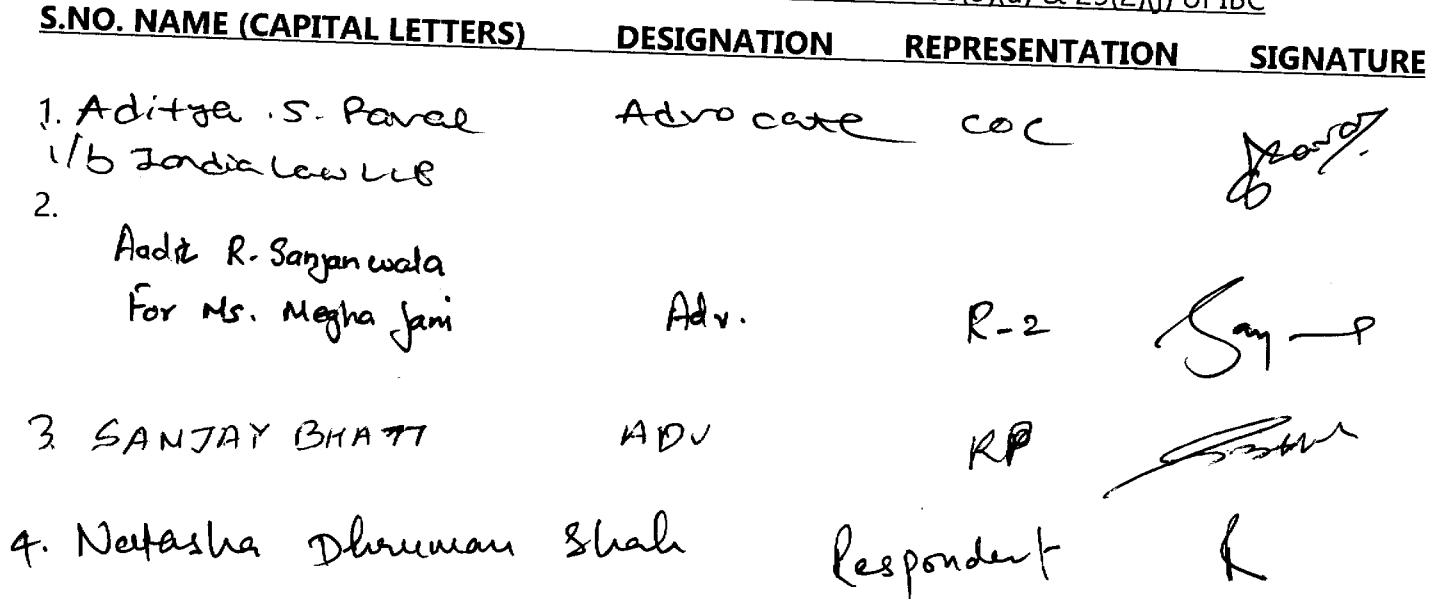 of IBC
S.NO. NAME (CAPITAL LETTERS) DESIGNATION REPRESENTATION SIGNATURE
1. Aditya .S. Advocate COC
i/b India Law LLP
2.
Aadit R. Sanjanwala
For Ms. Megha Jani Adv. R-2
3. SANJAY BHATT ADV RP
4. Natasha Dhruman Shah Respondent